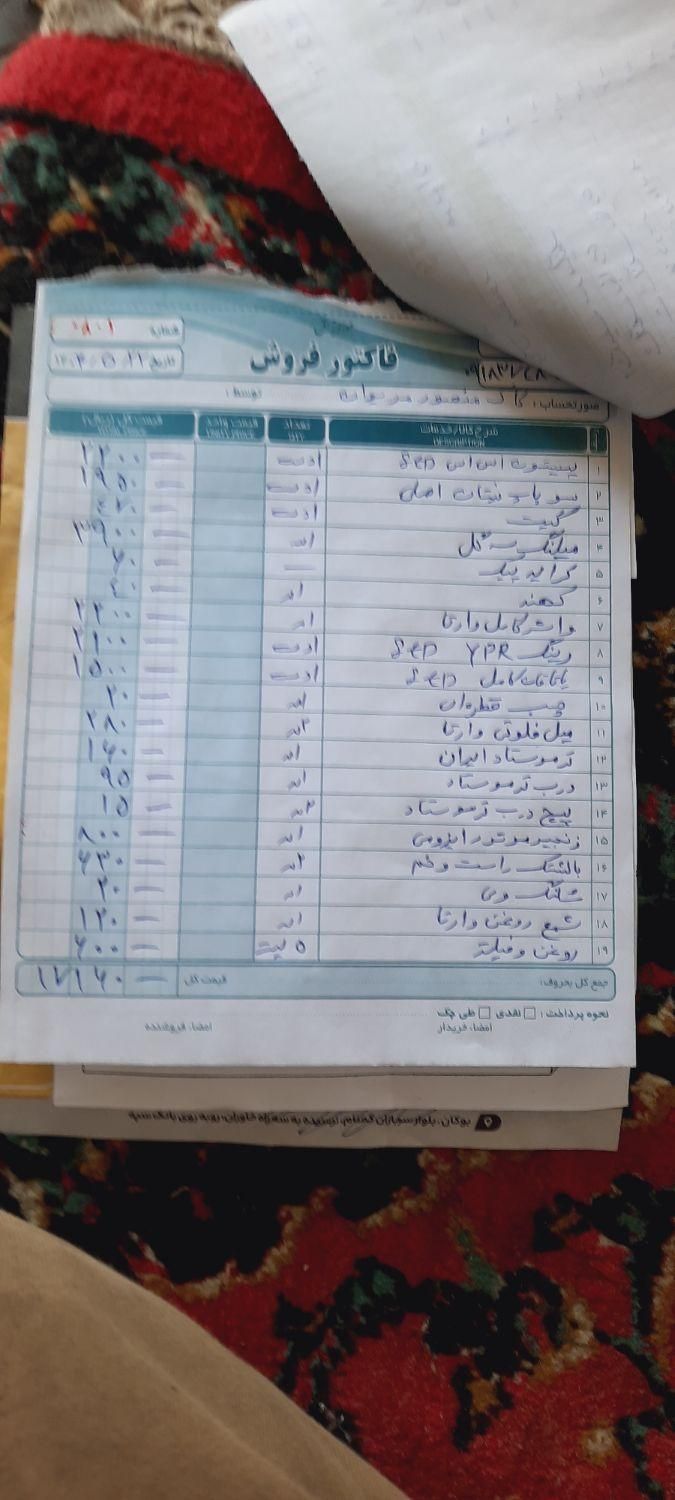 فاکتور فروش
شماره ۰۸۰۱
تاریخ ۱۴۰۴/۵/۱۱
صورتحساب: کاک منصور مریوان توسط:
شرح کالا/خدمات تعداد قیمت واحد قیمت کل (ریال)
۱ پیستون اس اس SED ۱دست ۲۲۰۰ —
۲ سوپاپ نیشان اصلی ۱دست ۱۹۵۰ —
۳ گیت ۱دست —
۴ میلنگ سه گل ۱عدد ۳۹۰۰ —
۵ کرایه پیک — ۶۰ —
۶ کهنه ۱عدد —
۷ واشر کامل وارتا ۱عدد ۲۲۰۰ —
۸ رینگ YPR SED ۱دست ۲۱۰۰ —
۹ یاتاقان کامل SED ۱دست ۱۵۰۰ —
۱۰ چسب قطران ۱عدد ۲۰ —
۱۱ میل فلوتی وارتا ۲عدد ۲۸۰ —
۱۲ ترموستات ایران ۱عدد ۱۶۰ —
۱۳ درب ترموستات ۱عدد ۹۵ —
۱۴ پیچ درب ترموستات ۳عدد ۱۵ —
۱۵ زنجیر موتور ایزومی ۱عدد ۸۰۰ —
۱۶ بالشتک راست و خم ۲عدد ۶۳۰ —
۱۷ شلنگ وی ۱عدد ۳۰ —
۱۸ شمع روغن وارتا ۱عدد ۱۲۰ —
۱۹ روغن و فیلتر ۵ لیتر ۶۰۰ —
جمع کل بحروف: قیمت کل ۱۷۱۶۰ —
نحوه پرداخت: نقدی طی چک
امضاء خریدار امضاء فروشنده
بوکان، بلوار سجاران گمنام، نرسیده به سه راه خاوران، روبه روی بانک سپه